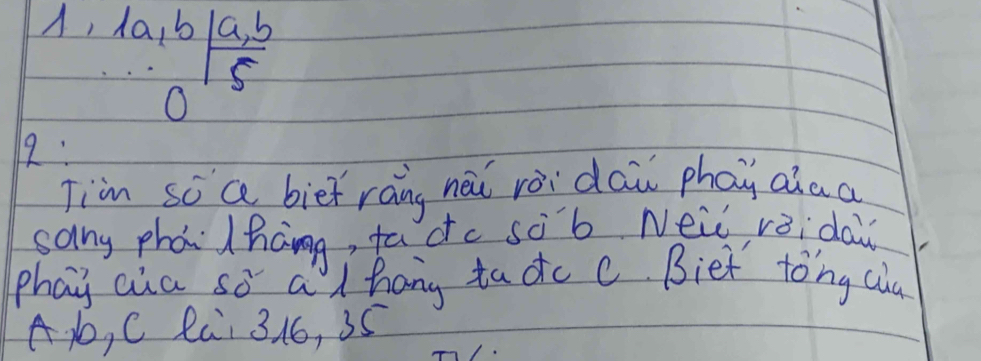 1, 1a,b a,b
... 5
0
2:
Tìm số a biết rằng nếu rời dấu phẩy của a
sang phải 1 hàng, ta đc số b. Nếu rời dấu
phẩy của số a 1 hàng ta đc C. Biết tổng của
A, b, C là: 316, 35